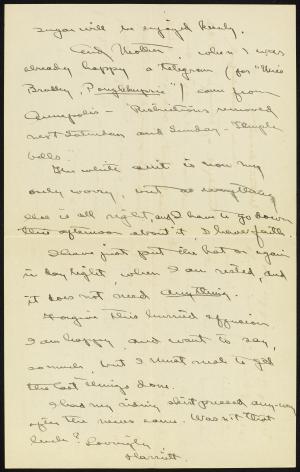 sugar will be enjoyed freely.
And Mother, when I was
already happy a telegram (for "Miss
Bradley, Poughkeepsie"!) came from
Annapolis – "Restrictions removed
next Saturday and Sunday – Temple
bells.
The white suit is now my
only worry, but as everything
else is all right, and I have to go down
this afternoon about it, I have faith.
I have just put the hat on again
in day light, when I am rested, and
it does not need anything.
Forgive this hurried effusion.
I am happy and want to say
so much, but I must rush to get
the last things done.
I had my riding skirt pressed any-way
after the news came. Wasn't that
luck? Lovingly
Harriett.